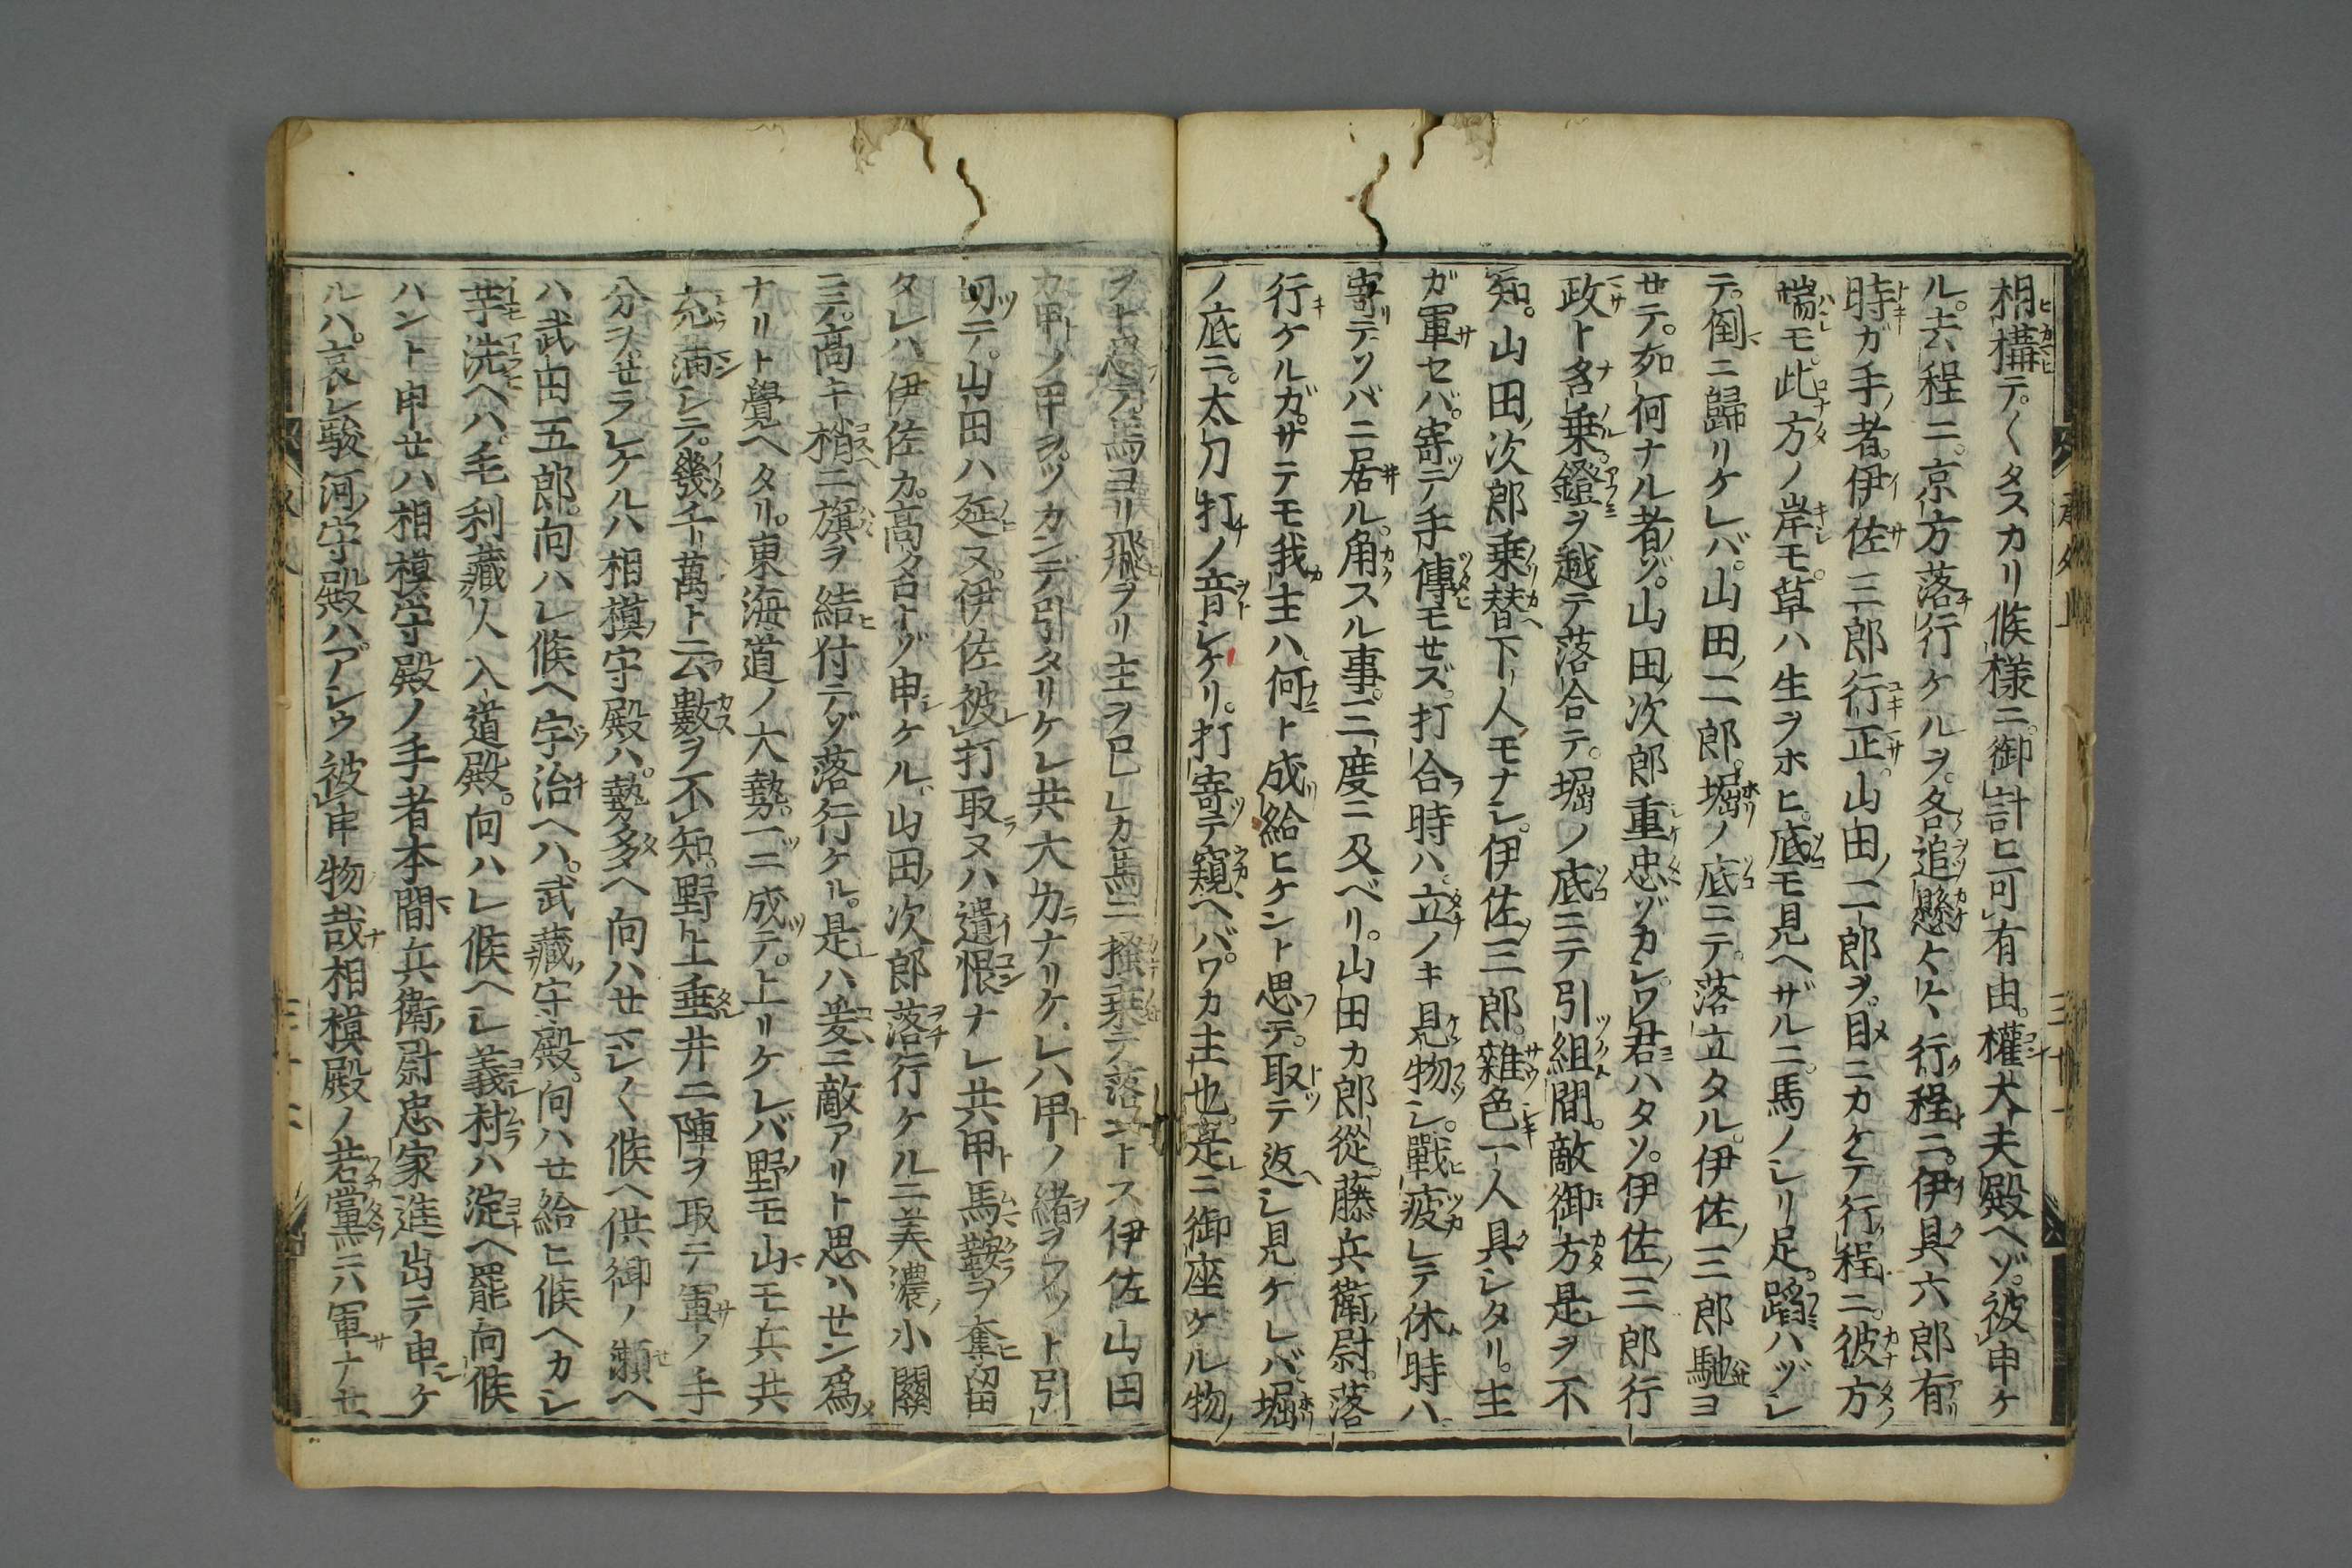 相構テ〱タスカリ候様ニ御計ヒ可有由。權大夫殿ヘゾ。被申ケ
ル。去程ニ。京方落行ケルヲ。各追懸ケ〱行程ニ。伊具六郎有
時ガ手者。伊佐三郎行正。山田二郎ヲ。目ニカケテ行程ニ。彼方
端モ。此方ノ岸モ。草ハ生ヲホヒ。底モ見ヘザルニ。馬ノレリ足。蹈ハヅシ
テ。倒ニ歸リケレバ。山田二郎。堀ノ底ニテ。落立タル。伊佐三郎馳ヨ
セテ。如何ナル者ゾ。山田次郎重忠ゾカシ。ワ君ハタソ。伊佐三郎行
政ト名乗。鐙ヲ越テ落合テ。堀ノ底ニテ引組間。敵御方是ヲ不
知。山田次郎乗替下人モナシ。伊佐三郎。雜色一人具シタリ。主
ガ軍セバ。寄テ手傳モセズ。打合時ハ。立ノキ見物シ。戰疲レテ休時ハ
寄テソバニ居ル。角スル事。三度ニ及ベリ。山田カ郎從。藤兵衛尉。落
行ケルガ。サテモ我主ハ何ト成給ヒケント思テ。取テ返シ見ケレバ堀
ノ底ニ。太刀打ノ音シケリ。打寄テ窺ヘバ。ワカ主也。是ニ御座ケル物
ヲト忩テ馬ヨリ飛ヲリ主ヲ已レカ馬ニ掻乗テ落ントス伊佐山田
カ甲ノ甲ヲツカンデ引タリケレ共大力ナリケレハ甲ノ緒ヲフツト引
切テ。山田ハ延ヌ。伊佐被打取ヌハ遺恨ナレ共甲馬鞍ヲ奪留
タレハ伊佐カ。高名トゾ申ケル。山田次郎落行ケル三美濃小關
ニテ。高キ梢ニ旗ヲ結付テゾ落行ケル。是ハ爰ニ敵アリト思ハセン爲
ナリト覺ヘタリ。東海道ノ大勢。一ニ成テ。上リケレバ野モ山モ兵共
充滿シテ。幾千萬ト云數ヲ不知。野上垂井ニ陣ヲ取テ軍ノ手
分ヲセラレケルハ相模守殿ハ。勢多ヘ向ハセマシ〱候ヘ供御ノ瀬ヘ
ハ武田五郎。向ハレ候ヘ宇治ヘハ。武藏守殿。向ハセ給ヒ候ヘカシ
芋洗ヘハ。毛利藏人入道殿。向ハレ候ヘシ義村ハ淀ヘ罷向候
ハント申セハ相模守殿ノ手者本間兵衛尉忠家進出テ申ケ
ルハ。哀レ駿河守殿ハ。アシウ被申物哉相模殿ノ若黨ニハ軍ナセ